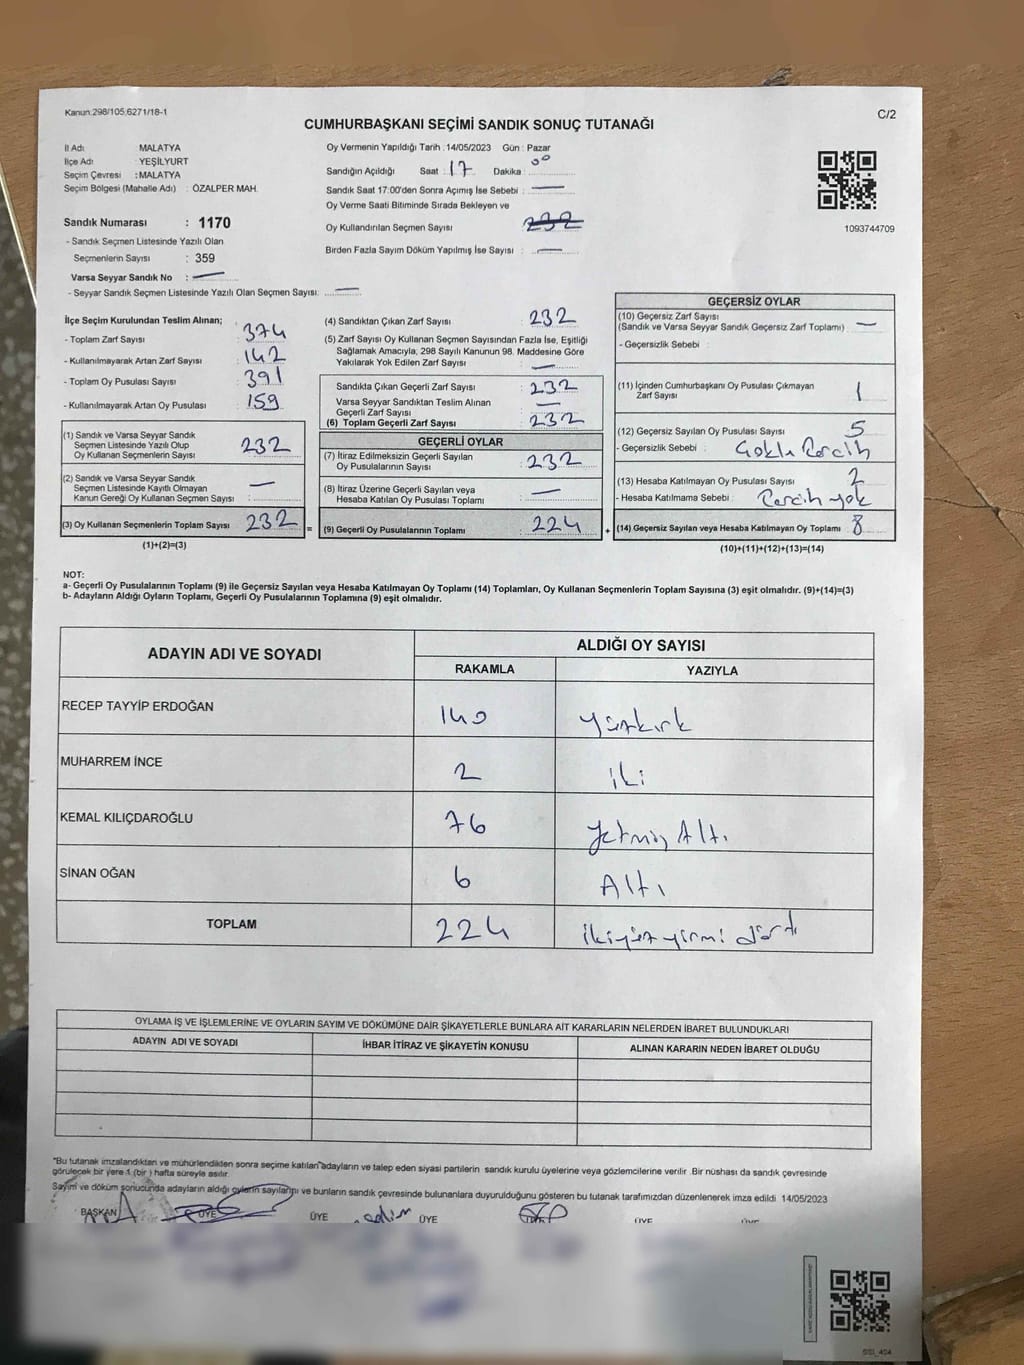 Kanun:298/105,6271/18-1
C/2
CUMHURBAŞKANI SEÇİMİ SANDIK SONUÇ TUTANAĞI
İl Adı : MALATYA
İlçe Adı : YEŞİLYURT
Seçim Çevresi : MALATYA
Seçim Bölgesi (Mahalle Adı) : ÖZALPER MAH.
Sandık Numarası : 1170
- Sandık Seçmen Listesinde Yazılı Olan
Seçmenlerin Sayısı : 359
Varsa Seyyar Sandık No : —
- Seyyar Sandık Seçmen Listesinde Yazılı Olan Seçmen Sayısı: —
Oy Vermenin Yapıldığı Tarih : 14/05/2023 Gün : Pazar
Sandığın Açıldığı Saat : 17 Dakika : 00
Sandık Saat 17:00'den Sonra Açımış İse Sebebi : —
Oy Verme Saati Bitiminde Sırada Bekleyen ve
Oy Kullandırılan Seçmen Sayısı : 232
Birden Fazla Sayım Döküm Yapılmış İse Sayısı : —
1093744709
İlçe Seçim Kurulundan Teslim Alınan;
- Toplam Zarf Sayısı : 374
- Kullanılmayarak Artan Zarf Sayısı : 142
- Toplam Oy Pusulası Sayısı : 391
- Kullanılmayarak Artan Oy Pusulası : 159
(1) Sandık ve Varsa Seyyar Sandık
Seçmen Listesinde Yazılı Olup
Oy Kullanan Seçmenlerin Sayısı : 232
(2) Sandık ve Varsa Seyyar Sandık
Seçmen Listesinde Kayıtlı Olmayan
Kanun Gereği Oy Kullanan Seçmen Sayısı : —
(3) Oy Kullanan Seçmenlerin Toplam Sayısı : 232 =
(1)+(2)=(3)
(4) Sandıktan Çıkan Zarf Sayısı : 232
(5) Zarf Sayısı Oy Kullanan Seçmen Sayısından Fazla İse, Eşitliği
Sağlamak Amacıyla, 298 Sayılı Kanunun 98. Maddesine Göre
Yakılarak Yok Edilen Zarf Sayısı : —
Sandıkta Çıkan Geçerli Zarf Sayısı : 232
Varsa Seyyar Sandıktan Teslim Alınan
Geçerli Zarf Sayısı : —
(6) Toplam Geçerli Zarf Sayısı : 232
GEÇERLİ OYLAR
(7) İtiraz Edilmeksizin Geçerli Sayılan
Oy Pusulalarının Sayısı : 232
(8) İtiraz Üzerine Geçerli Sayılan veya
Hesaba Katılan Oy Pusulası Toplamı : —
(9) Geçerli Oy Pusulalarının Toplamı : 224 +
GEÇERSİZ OYLAR
(10) Geçersiz Zarf Sayısı
(Sandık ve Varsa Seyyar Sandık Geçersiz Zarf Toplamı) : —
- Geçersizlik Sebebi :
(11) İçinden Cumhurbaşkanı Oy Pusulası Çıkmayan
Zarf Sayısı : 1
(12) Geçersiz Sayılan Oy Pusulası Sayısı : 5
- Geçersizlik Sebebi :
(13) Hesaba Katılmayan Oy Pusulası Sayısı : 2
- Hesaba Katılmama Sebebi : Tercih yok
(14) Geçersiz Sayılan veya Hesaba Katılmayan Oy Toplamı : 8
(10)+(11)+(12)+(13)=(14)
NOT:
a- Geçerli Oy Pusulalarının Toplamı (9) ile Geçersiz Sayılan veya Hesaba Katılmayan Oy Toplamı (14) Toplamları, Oy Kullanan Seçmenlerin Toplam Sayısına (3) eşit olmalıdır. (9)+(14)=(3)
b- Adayların Aldığı Oyların Toplamı, Geçerli Oy Pusulalarının Toplamına (9) eşit olmalıdır.
ADAYIN ADI VE SOYADI
ALDIĞI OY SAYISI
RAKAMLA YAZIYLA
RECEP TAYYİP ERDOĞAN 140 Yüzkırk
MUHARREM İNCE 2 iki
KEMAL KILIÇDAROĞLU 76 Yetmiş Altı
SİNAN OĞAN 6 Altı
TOPLAM 224 ikiyüz yirmi dört
OYLAMA İŞ VE İŞLEMLERİNE VE OYLARIN SAYIM VE DÖKÜMÜNE DAİR ŞİKAYETLERLE BUNLARA AİT KARARLARIN NELERDEN İBARET BULUNDUKLARI
ADAYIN ADI VE SOYADI İHBAR İTİRAZ VE ŞİKAYETİN KONUSU ALINAN KARARIN NEDEN İBARET OLDUĞU
*Bu tutanak imzalandıktan ve mühürlendikten sonra seçime katılan adayların ve talep eden siyasi partilerin sandık kurulu üyelerine veya gözlemcilerine verilir .Bir nüshası da sandık çevresinde
görülecek bir yere 1 (bir ) hafta süreyle asılır.
Sayım ve döküm sonucunda adayların aldığı oyların sayılarını ve bunların sandık çevresinde bulunanlara duyurulduğunu gösteren bu tutanak tarafımızdan düzenlenerek imza edildi 14/05/2023
BAŞKAN ÜYE ÜYE ÜYE ÜYE ÜYE